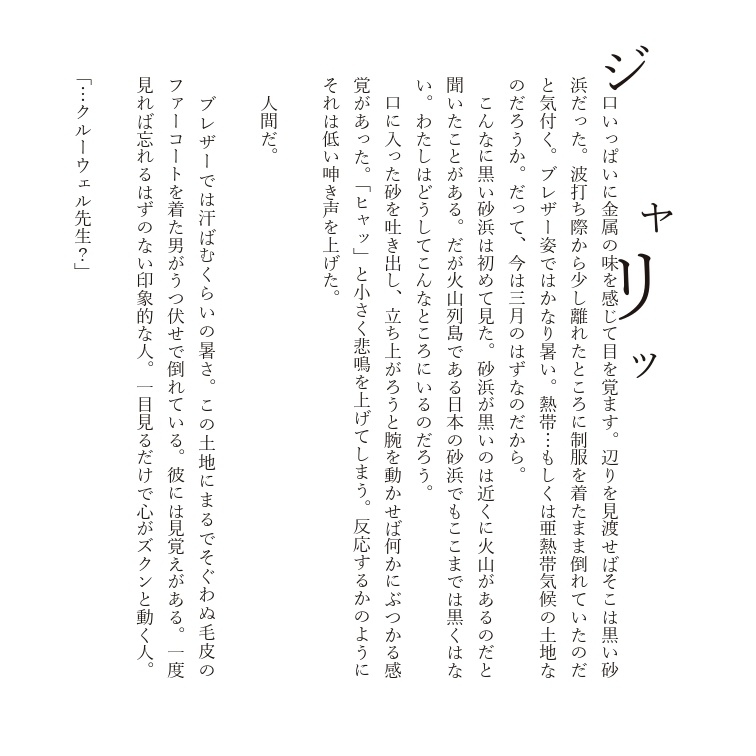 ジャリッ
口いっぱいに金属の味を感じて目を覚ます。辺りを見渡せばそこは黒い砂
浜だった。波打ち際から少し離れたところに制服を着たまま倒れていたのだ
と気付く。ブレザー姿ではかなり暑い。熱帯…もしくは亜熱帯気候の土地な
のだろうか。だって、今は三月のはずなのだから。
こんなに黒い砂浜は初めて見た。砂浜が黒いのは近くに火山があるのだと
聞いたことがある。だが火山列島である日本の砂浜でもここまでは黒くはな
い。わたしはどうしてこんなところにいるのだろう。
口に入った砂を吐き出し、立ち上がろうと腕を動かせば何かにぶつかる感
覚があった。「ヒャッ」と小さく悲鳴を上げてしまう。反応するかのように
それは低い呻き声を上げた。
人間だ。
ブレザーでは汗ばむくらいの暑さ。この土地にまるでそぐわぬ毛皮の
ファーコートを着た男がうつ伏せで倒れている。彼には見覚えがある。一度
見れば忘れるはずのない印象的な人。一目見るだけで心がズクンと動く人。
「…クルーウェル先生？」